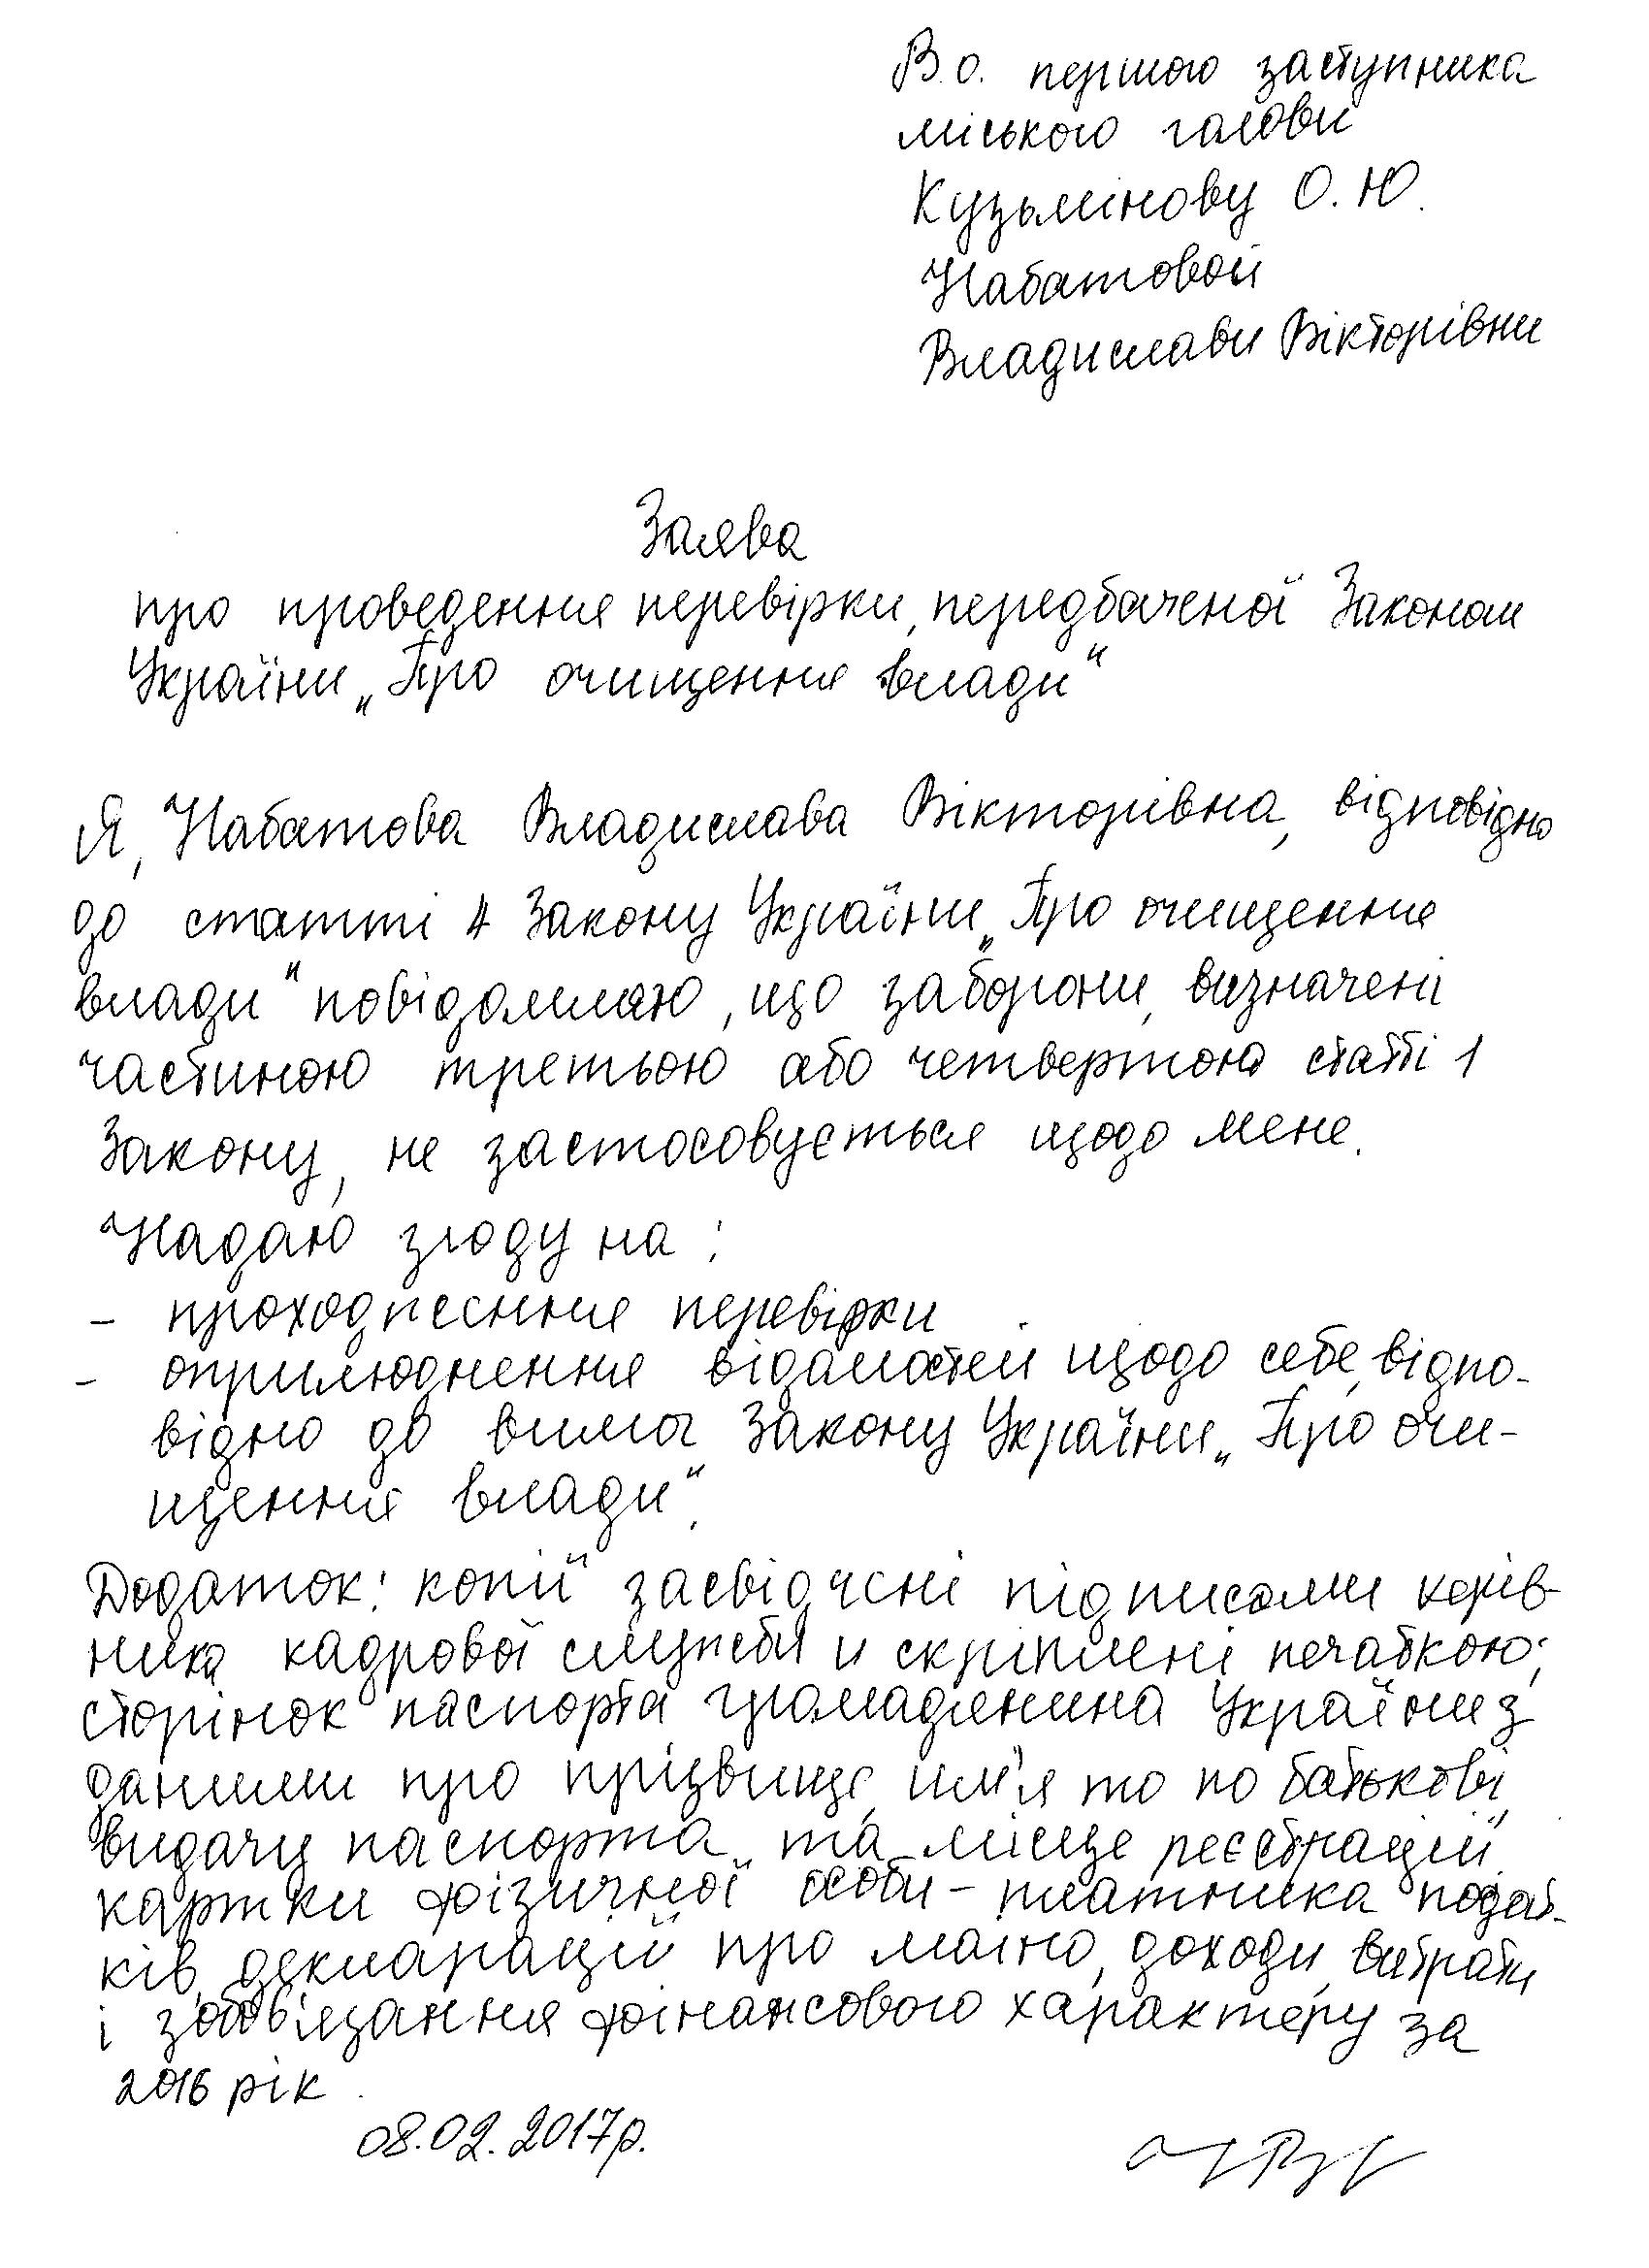 В.о. першого заступника
міського голови
Кузьмінову О.Ю.
Набатовой
Владислави Вікторівни
Заява
про проведення перевірки, передбаченої Законом
України „Про очищення влади“
Я, Набатова Владислава Вікторівна, відповідно
до статті 4 Закону України „Про очищення
влади“ повідомляю, що заборони, визначені
частиною третьою або четвертою статті 1
Закону, не застосовується щодо мене.
Надаю згоду на:
- проходження перевірки
- оприлюднення відомостей щодо себе, відпо-
відно до вимог Закону України „Про очи-
щення влади“.
Додаток: копії засвідчені підписами керів-
ника кадрової служби и скріплені печаткою;
сторінок паспорта громадянина України з
даними про прізвище, им'я то по батькові,
видачу паспорта та місце реєстрації,
картки фізичної особи - платника подат-
ків, декларації про майно, доходи, витрати
і зобов'язання фінансового характеру за
2016 рік.
08.02.2017р.